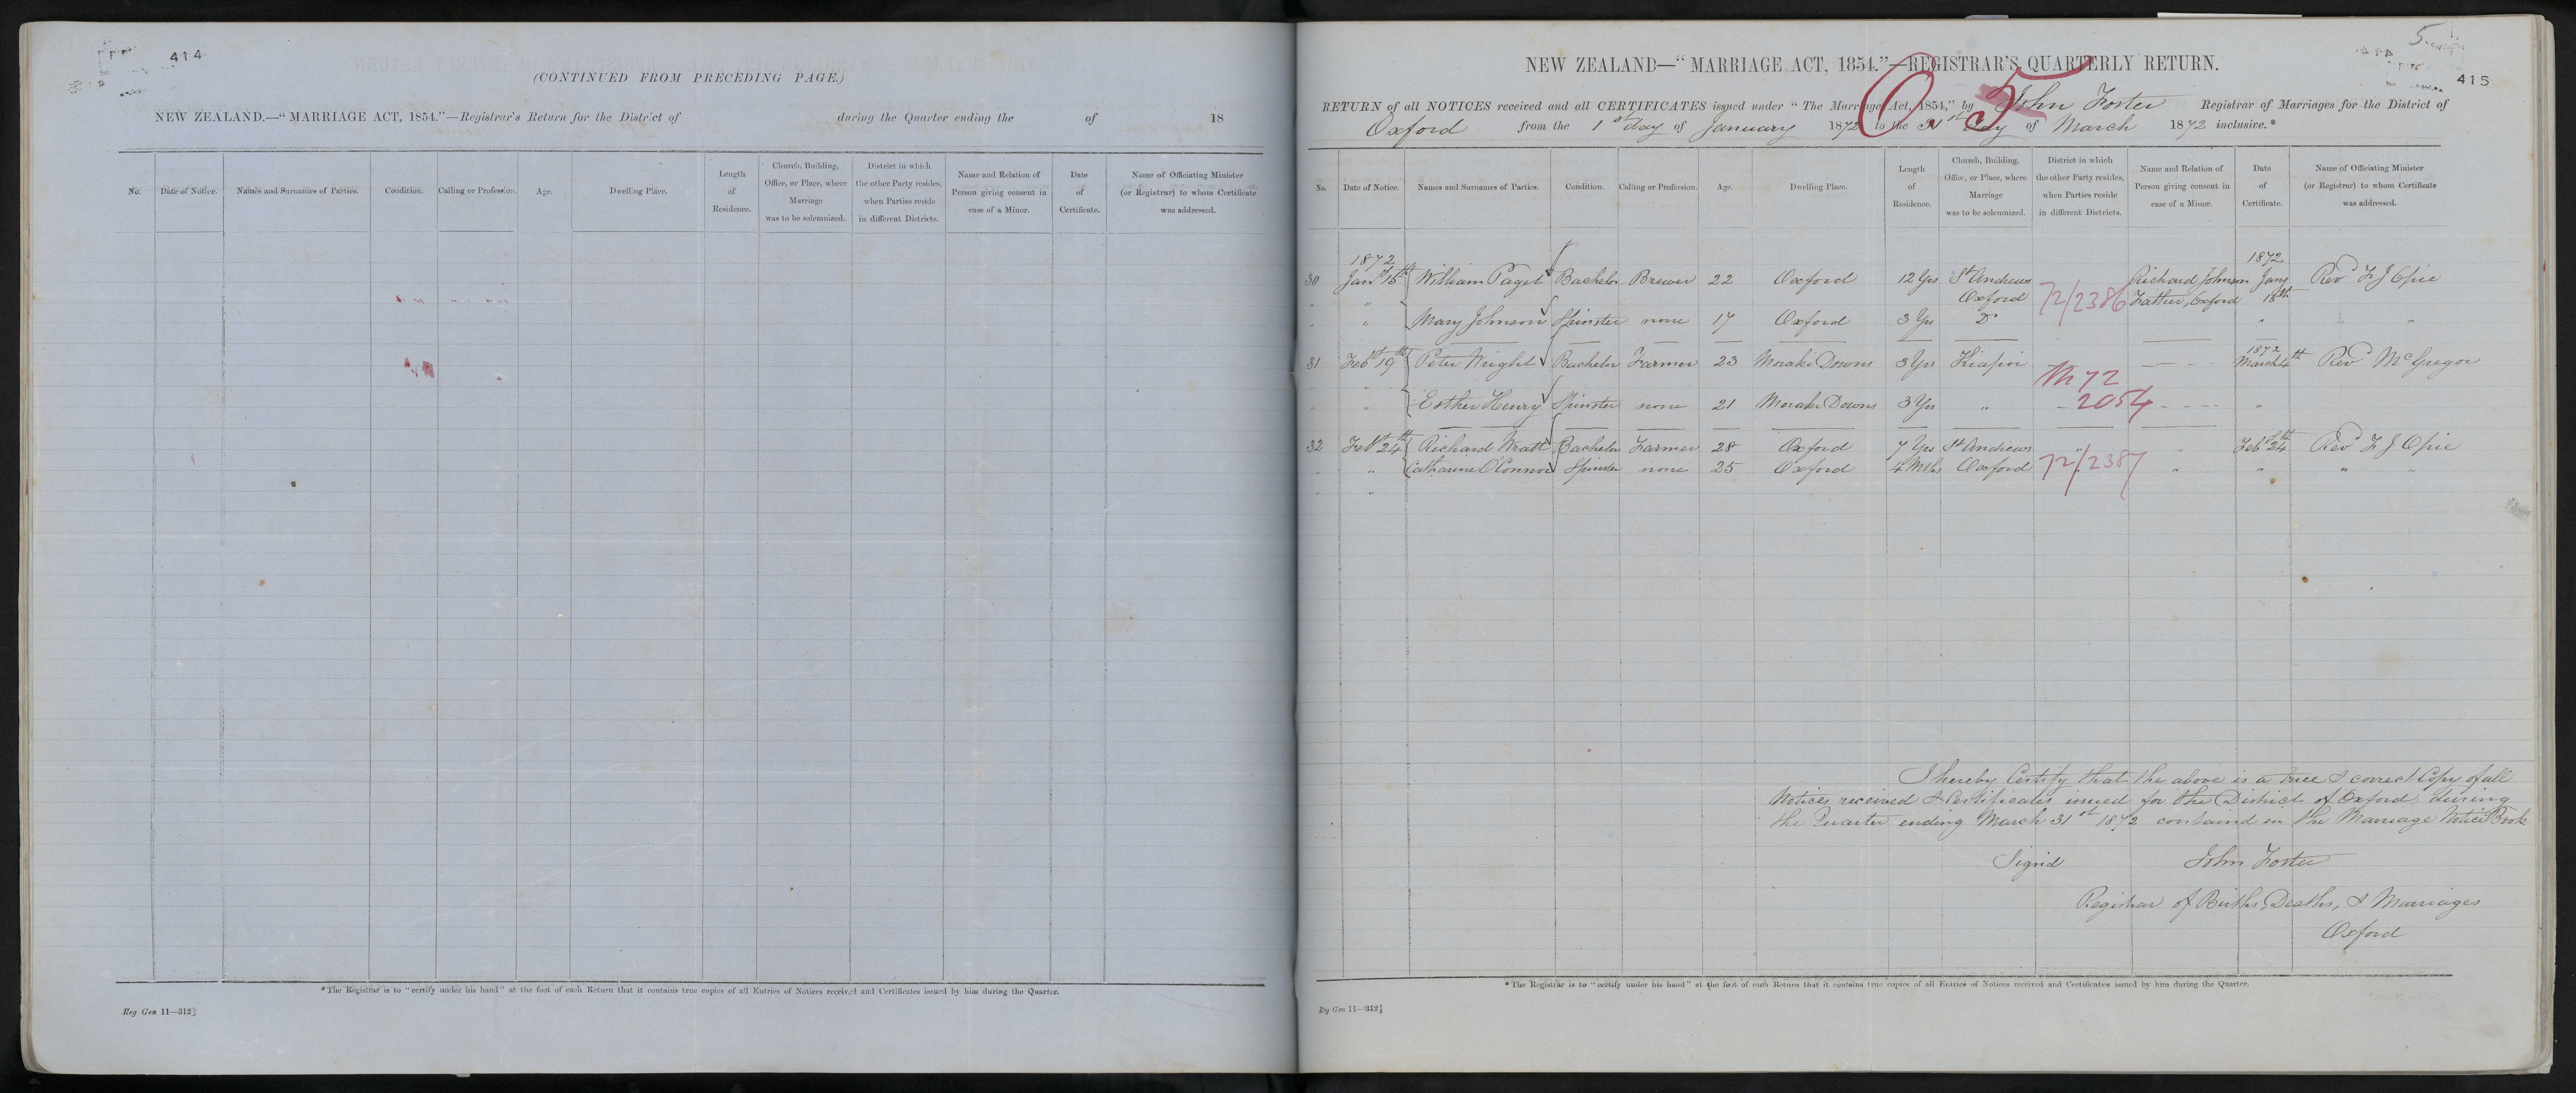 414
(CONTINUED FROM PRECEDING PAGE.)
NEW ZEALAND.—"MARRIAGE ACT, 1854."—Registrar's Return for the District of during the Quarter ending the of 18
No. Date of Notice. Names and Surnames of Parties. Condition. Calling or Profession. Age. Dwelling Place. Length of Residence. Church, Building, Office, or Place, where Marriage was to be solemnized. District in which the other Party resides, when Parties reside in different Districts. Name and Relation of Person giving consent in case of a Minor. Date of Certificate. Name of Officiating Minister (or Registrar) to whom Certificate was addressed.
*The Registrar is to "certify under his hand" at the foot of each Return that it contains true copies of all Entries of Notices received and Certificates issued by him during the Quarter.
Reg Gen 11—312
5
415
NEW ZEALAND—"MARRIAGE ACT, 1854."—REGISTRAR'S QUARTERLY RETURN.
O. 5
RETURN of all NOTICES received and all CERTIFICATES issued under "The Marriage Act, 1854," by John Foster Registrar of Marriages for the District of
Oxford from the 1st day of January 1872 to the 31st day of March 1872 inclusive.*
No. Date of Notice. Names and Surnames of Parties. Condition. Calling or Profession. Age. Dwelling Place. Length of Residence. Church, Building, Office, or Place, where Marriage was to be solemnized. District in which the other Party resides, when Parties reside in different Districts. Name and Relation of Person giving consent in case of a Minor. Date of Certificate. Name of Officiating Minister (or Registrar) to whom Certificate was addressed.
1872 1872
30 Jany 15th William Paget Bachelor Brewer 22 Oxford 12 Yrs St Andrews Richard Johnson Jany Revd F J Opie
Oxford 72/2386 Father, Oxford 15th
" " Mary Johnson Spinster none 17 Oxford 3 Yrs Do " " "
1872
31 Feby 19th Peter Wright Bachelor Farmer 23 Moraki Downs 3 Yrs Kiapoi March 4th Revd McGregor
M 72
" " Esther Henry Spinster none 21 Moraki Downs 3 Yrs " 2054 "
32 Feby 24th Richard Wratt Bachelor Farmer 28 Oxford 7 Yrs St Andrews " " Feby 24th Revd F J Opie
" " Catharine O'Connor Spinster none 25 Oxford 4 Mths Oxford 72/2387 " " " "
" "
I hereby Certify that the above is a true & correct Copy of all
Notices received & Certificates issued for the District of Oxford during
the Quarter ending March 31st 1872 contained in the Marriage Notice Book
Signd John Foster
Registrar of Births, Deaths, & Marriages
Oxford
*The Registrar is to "certify under his hand" at the foot of each Return that it contains true copies of all Entries of Notices received and Certificates issued by him during the Quarter.
Reg Gen 11—312